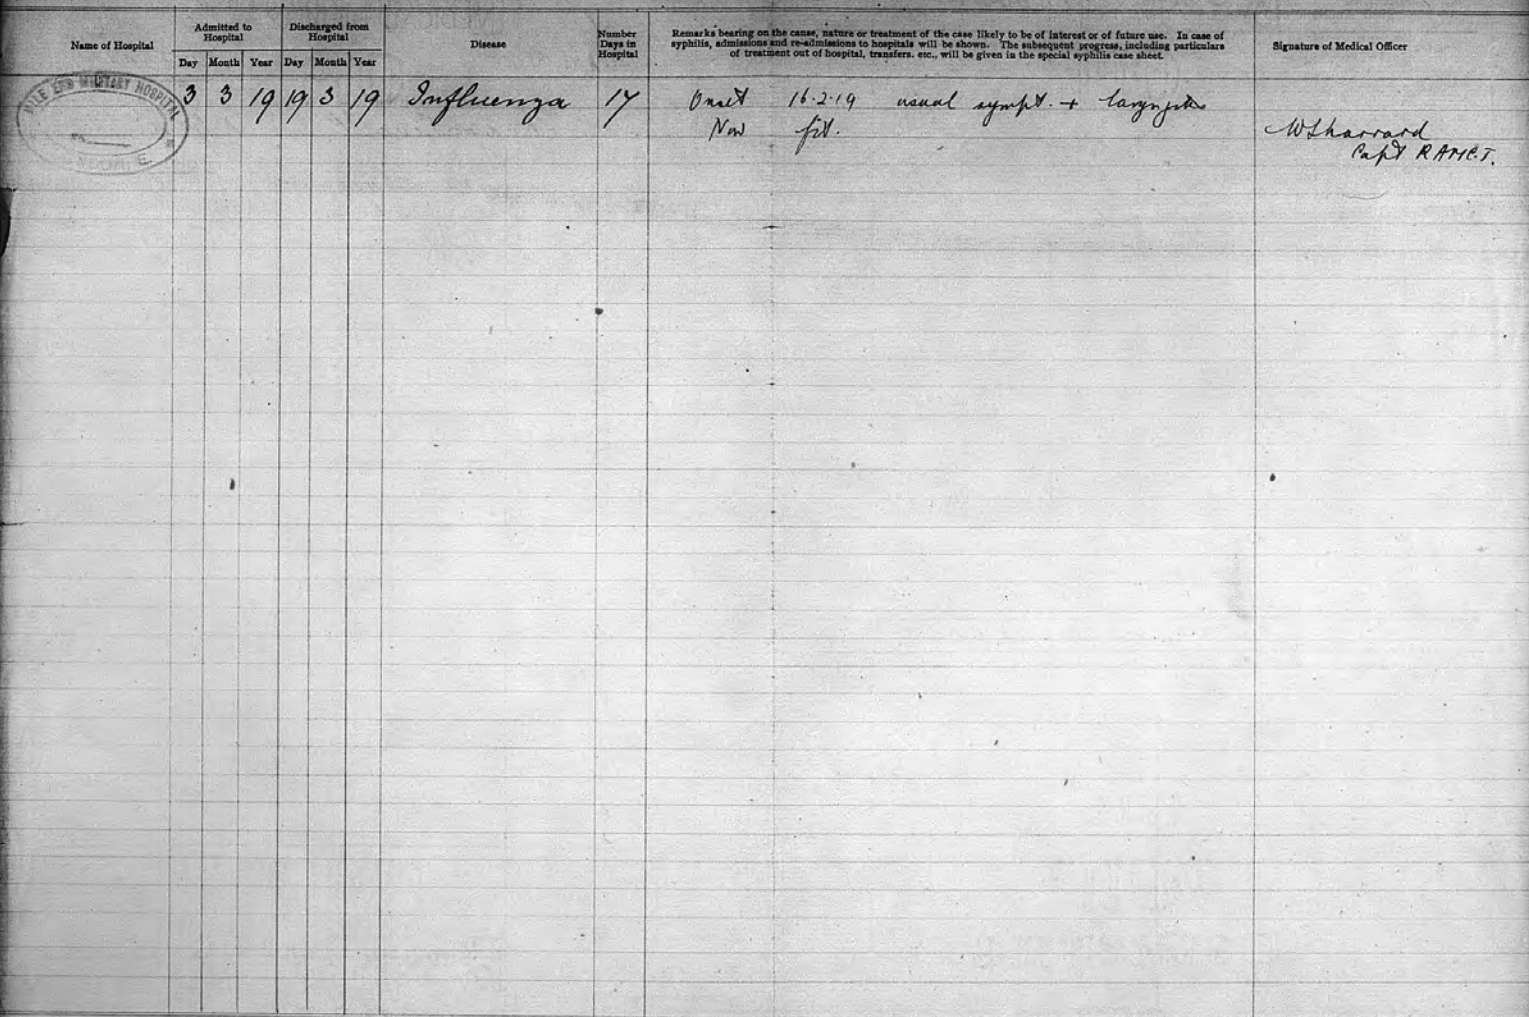 Name of Hospital
Admitted to Hospital
Day Month Year
Discharged from Hospital
Day Month Year
Disease
Number Days in Hospital
Remarks bearing on the cause, nature or treatment of the case likely to be of interest or of future use. In case of
syphilis, admissions and re-admissions to hospitals will be shown. The subsequent progress, including particulars
of treatment out of hospital, transfers. etc., will be given in the special syphilis case sheet.
Signature of Medical Officer
MILE END MILITARY HOSPITAL
3 3 19 19 3 19 Influenza 17 Onset 16.2.19 usual sympt. + laryngitis
Now fit.
WSharrard
Capt RAMC.T.